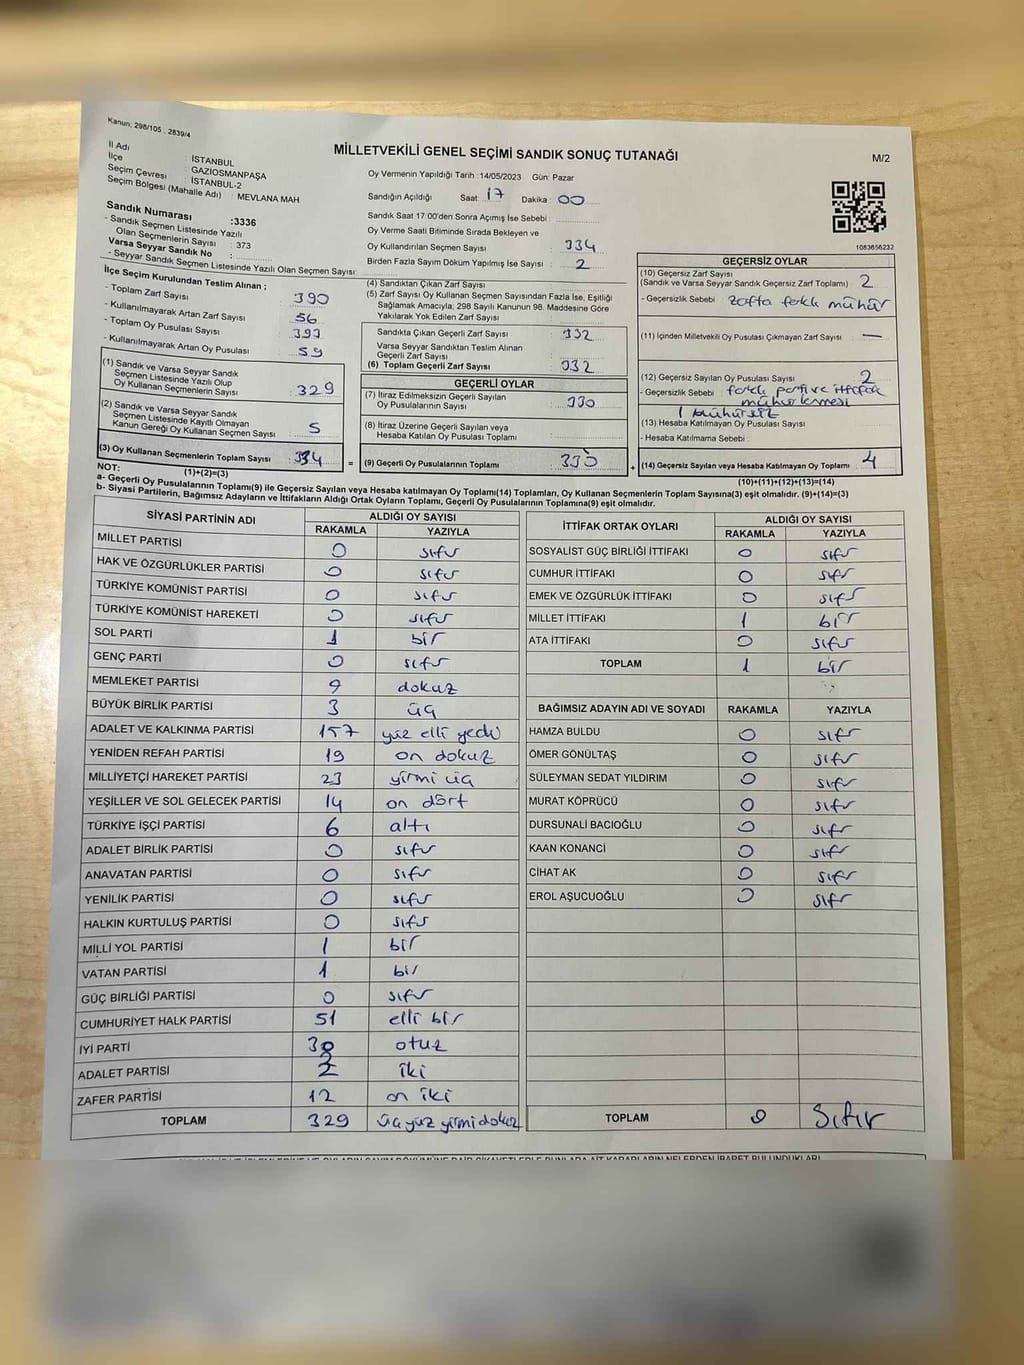 Kanun, 298/105 , 2839/4
MİLLETVEKİLİ GENEL SEÇİMİ SANDIK SONUÇ TUTANAĞI
M/2
İl Adı : İSTANBUL
İlçe : GAZİOSMANPAŞA
Seçim Çevresi : İSTANBUL-2
Seçim Bölgesi (Mahalle Adı) : MEVLANA MAH
Sandık Numarası :3336
- Sandık Seçmen Listesinde Yazılı
Olan Seçmenlerin Sayısı : 373
Varsa Seyyar Sandık No :
- Seyyar Sandık Seçmen Listesinde Yazılı Olan Seçmen Sayısı:
Oy Vermenin Yapıldığı Tarih :14/05/2023 Gün: Pazar
Sandığın Açıldığı Saat: 17 Dakika : 00
Sandık Saat 17:00'den Sonra Açımış İse Sebebi :
Oy Verme Saati Bitiminde Sırada Bekleyen ve
Oy Kullandırılan Seçmen Sayısı : 334
Birden Fazla Sayım Döküm Yapılmış İse Sayısı : 2
1083656232
İlçe Seçim Kurulundan Teslim Alınan ;
- Toplam Zarf Sayısı : 390
- Kullanılmayarak Artan Zarf Sayısı : 56
- Toplam Oy Pusulası Sayısı : 393
- Kullanılmayarak Artan Oy Pusulası : 59
(1) Sandık ve Varsa Seyyar Sandık
Seçmen Listesinde Yazılı Olup
Oy Kullanan Seçmenlerin Sayısı : 329
(2) Sandık ve Varsa Seyyar Sandık
Seçmen Listesinde Kayıtlı Olmayan
Kanun Gereği Oy Kullanan Seçmen Sayısı : 5
(3) Oy Kullanan Seçmenlerin Toplam Sayısı : 334
(1)+(2)=(3)
(4) Sandıktan Çıkan Zarf Sayısı :
(5) Zarf Sayısı Oy Kullanan Seçmen Sayısından Fazla İse, Eşitliği
Sağlamak Amacıyla; 298 Sayılı Kanunun 98. Maddesine Göre
Yakılarak Yok Edilen Zarf Sayısı :
Sandıkta Çıkan Geçerli Zarf Sayısı : 332
Varsa Seyyar Sandıktan Teslim Alınan
Geçerli Zarf Sayısı :
(6) Toplam Geçerli Zarf Sayısı : 332
GEÇERLİ OYLAR
(7) İtiraz Edilmeksizin Geçerli Sayılan
Oy Pusulalarının Sayısı : 330
(8) İtiraz Üzerine Geçerli Sayılan veya
Hesaba Katılan Oy Pusulası Toplamı :
= (9) Geçerli Oy Pusulalarının Toplamı : 330
GEÇERSİZ OYLAR
(10) Geçersiz Zarf Sayısı
(Sandık ve Varsa Seyyar Sandık Geçersiz Zarf Toplamı) : 2
- Geçersizlik Sebebi : zarfta farklı mühür
(11) İçinden Milletvekili Oy Pusulası Çıkmayan Zarf Sayısı : —
(12) Geçersiz Sayılan Oy Pusulası Sayısı : 2
- Geçersizlik Sebebi : farklı parti ve ittifak
mühürlemesi
1 mühürsüz
(13) Hesaba Katılmayan Oy Pusulası Sayısı :
- Hesaba Katılmama Sebebi :
+ (14) Geçersiz Sayılan veya Hesaba Katılmayan Oy Toplamı : 4
(10)+(11)+(12)+(13)=(14)
NOT:
a- Geçerli Oy Pusulalarının Toplamı(9) ile Geçersiz Sayılan veya Hesaba katılmayan Oy Toplamı(14) Toplamları, Oy Kullanan Seçmenlerin Toplam Sayısına(3) eşit olmalıdır. (9)+(14)=(3)
b- Siyasi Partilerin, Bağımsız Adayların ve İttifakların Aldığı Ortak Oyların Toplamı, Geçerli Oy Pusulalarının Toplamına(9) eşit olmalıdır.
SİYASİ PARTİNİN ADI ALDIĞI OY SAYISI
RAKAMLA YAZIYLA
MİLLET PARTİSİ 0 sıfır
HAK VE ÖZGÜRLÜKLER PARTİSİ 0 sıfır
TÜRKİYE KOMÜNİST PARTİSİ 0 sıfır
TÜRKİYE KOMÜNİST HAREKETİ 0 sıfır
SOL PARTİ 1 bir
GENÇ PARTİ 0 sıfır
MEMLEKET PARTİSİ 9 dokuz
BÜYÜK BİRLİK PARTİSİ 3 üç
ADALET VE KALKINMA PARTİSİ 157 yüz elli yedi
YENİDEN REFAH PARTİSİ 19 on dokuz
MİLLİYETÇİ HAREKET PARTİSİ 23 yirmi üç
YEŞİLLER VE SOL GELECEK PARTİSİ 14 on dört
TÜRKİYE İŞÇİ PARTİSİ 6 altı
ADALET BİRLİK PARTİSİ 0 sıfır
ANAVATAN PARTİSİ 0 sıfır
YENİLİK PARTİSİ 0 sıfır
HALKIN KURTULUŞ PARTİSİ 0 sıfır
MİLLİ YOL PARTİSİ 1 bir
VATAN PARTİSİ 1 bir
GÜÇ BİRLİĞİ PARTİSİ 0 sıfır
CUMHURİYET HALK PARTİSİ 51 elli bir
İYİ PARTİ 30 otuz
ADALET PARTİSİ 2 iki
ZAFER PARTİSİ 12 on iki
TOPLAM 329 üç yüz yirmi dokuz
İTTİFAK ORTAK OYLARI ALDIĞI OY SAYISI
RAKAMLA YAZIYLA
SOSYALİST GÜÇ BİRLİĞİ İTTİFAKI 0 sıfır
CUMHUR İTTİFAKI 0 sıfır
EMEK VE ÖZGÜRLÜK İTTİFAKI 0 sıfır
MİLLET İTTİFAKI 1 bir
ATA İTTİFAKI 0 sıfır
TOPLAM 1 bir
BAĞIMSIZ ADAYIN ADI VE SOYADI RAKAMLA YAZIYLA
HAMZA BULDU 0 sıfır
ÖMER GÖNÜLTAŞ 0 sıfır
SÜLEYMAN SEDAT YILDIRIM 0 sıfır
MURAT KÖPRÜCÜ 0 sıfır
DURSUNALİ BACIOĞLU 0 sıfır
KAAN KONANCİ 0 sıfır
CİHAT AK 0 sıfır
EROL AŞUCUOĞLU 0 sıfır
TOPLAM 0 Sıfır